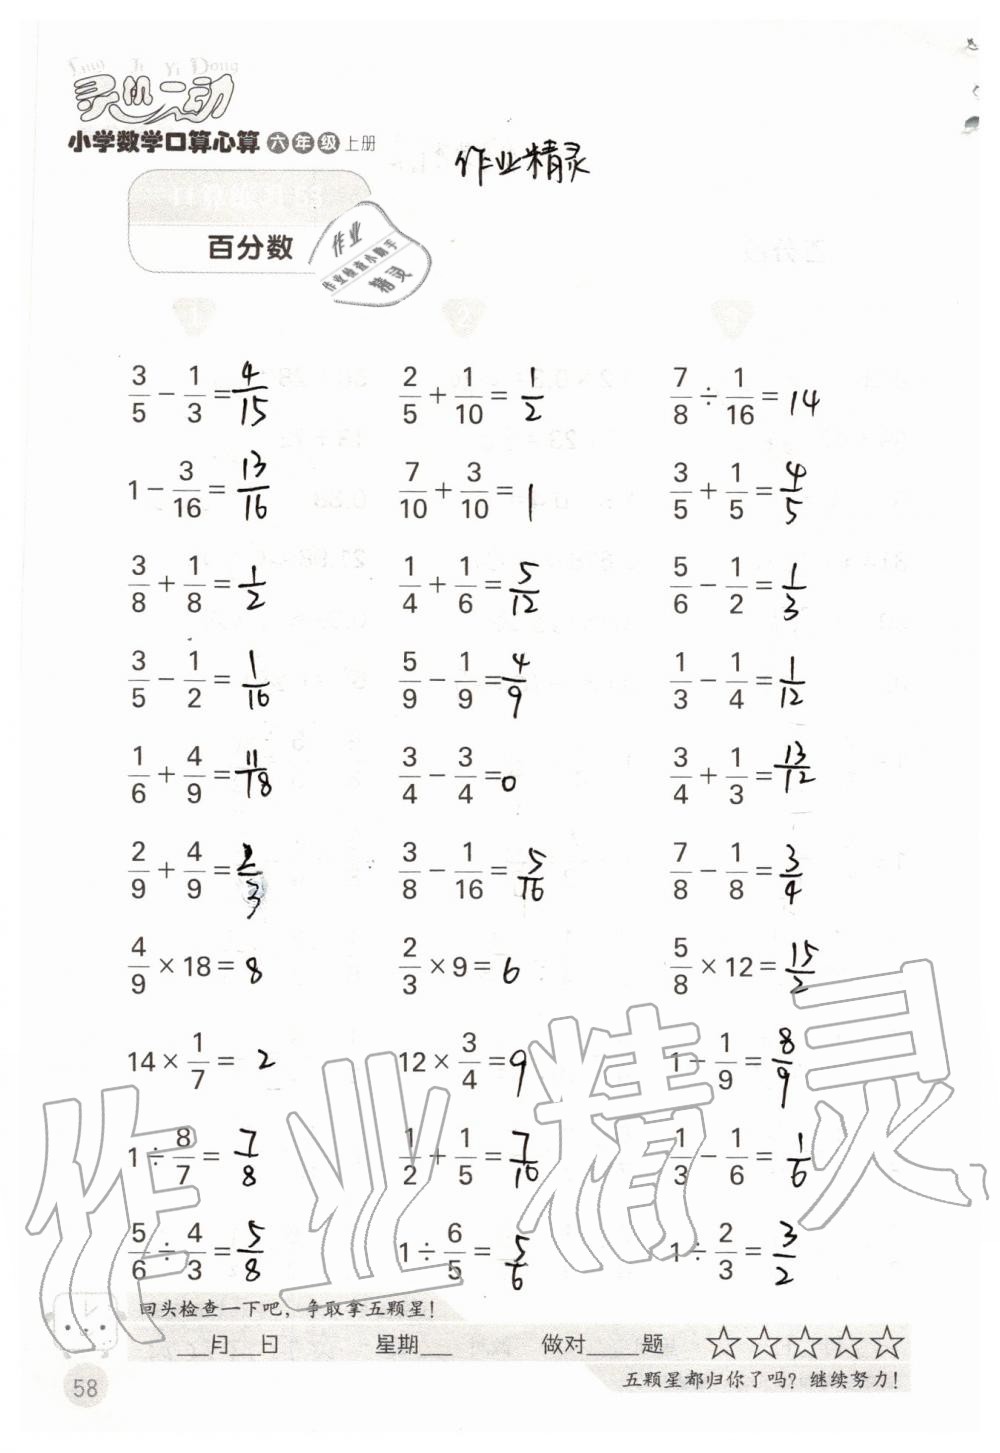 Ling Ji Yi Dong
灵机一动
小学数学口算心算 六年级 上册
作业精灵
百分数
作业
作业检查小助手
精灵
3/5 − 1/3 = 4/15 2/5 + 1/10 = 1/2 7/8 ÷ 1/16 = 14
1 − 3/16 = 13/16 7/10 + 3/10 = 1 3/5 + 1/5 = 4/5
3/8 + 1/8 = 1/2 1/4 + 1/6 = 5/12 5/6 − 1/2 = 1/3
3/5 − 1/2 = 1/10 5/9 − 1/9 = 4/9 1/3 − 1/4 = 1/12
1/6 + 4/9 = 11/18 3/4 − 3/4 = 0 3/4 + 1/3 = 13/12
2/9 + 4/9 = 2/3 3/8 − 1/16 = 5/16 7/8 − 1/8 = 3/4
4/9 × 18 = 8 2/3 × 9 = 6 5/8 × 12 = 15/2
14 × 1/7 = 2 12 × 3/4 = 9 1 − 1/9 = 8/9
1 ÷ 8/7 = 7/8 1/2 + 1/5 = 7/10 1/3 − 1/6 = 1/6
5/6 ÷ 4/3 = 5/8 1 ÷ 6/5 = 5/6 1 ÷ 2/3 = 3/2
作业精灵
回头检查一下吧，争取拿五颗星！
___月___日 星期___ 做对_____题 ☆☆☆☆☆
五颗星都归你了吗？继续努力！
58